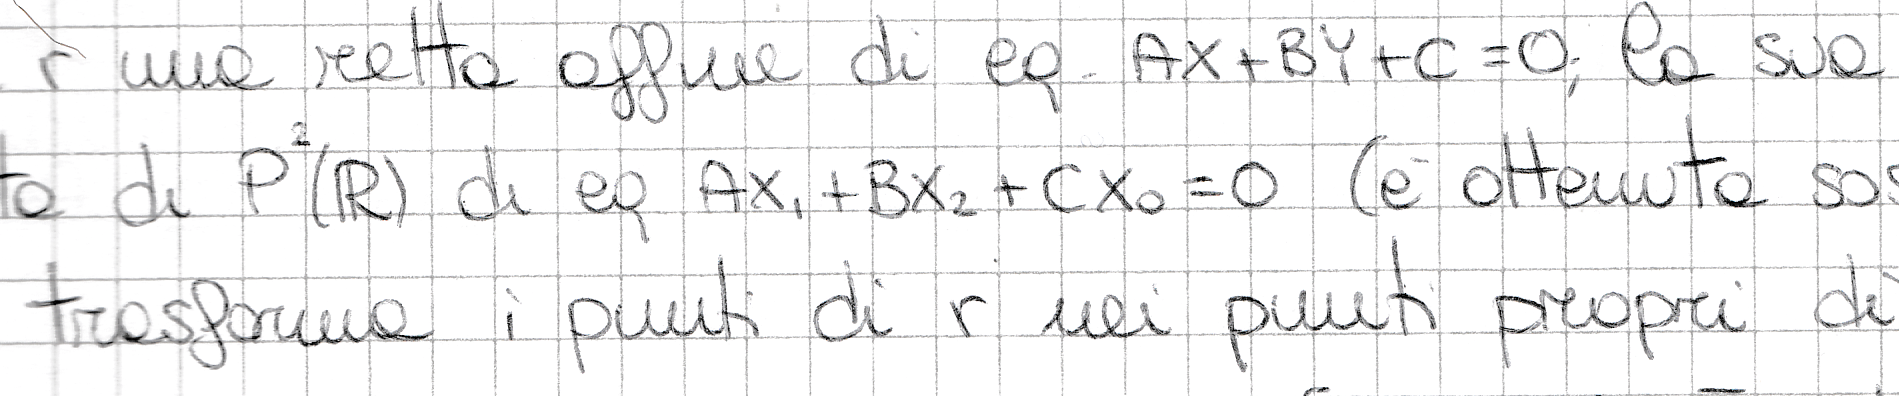 r una retta affine di eq. AX+BY+C=0; la sua
ta di P²(ℝ) di eq AX₁+BX₂+CX₀=0 (è ottenuta sos
trasforma i punti di r nei punti propri di